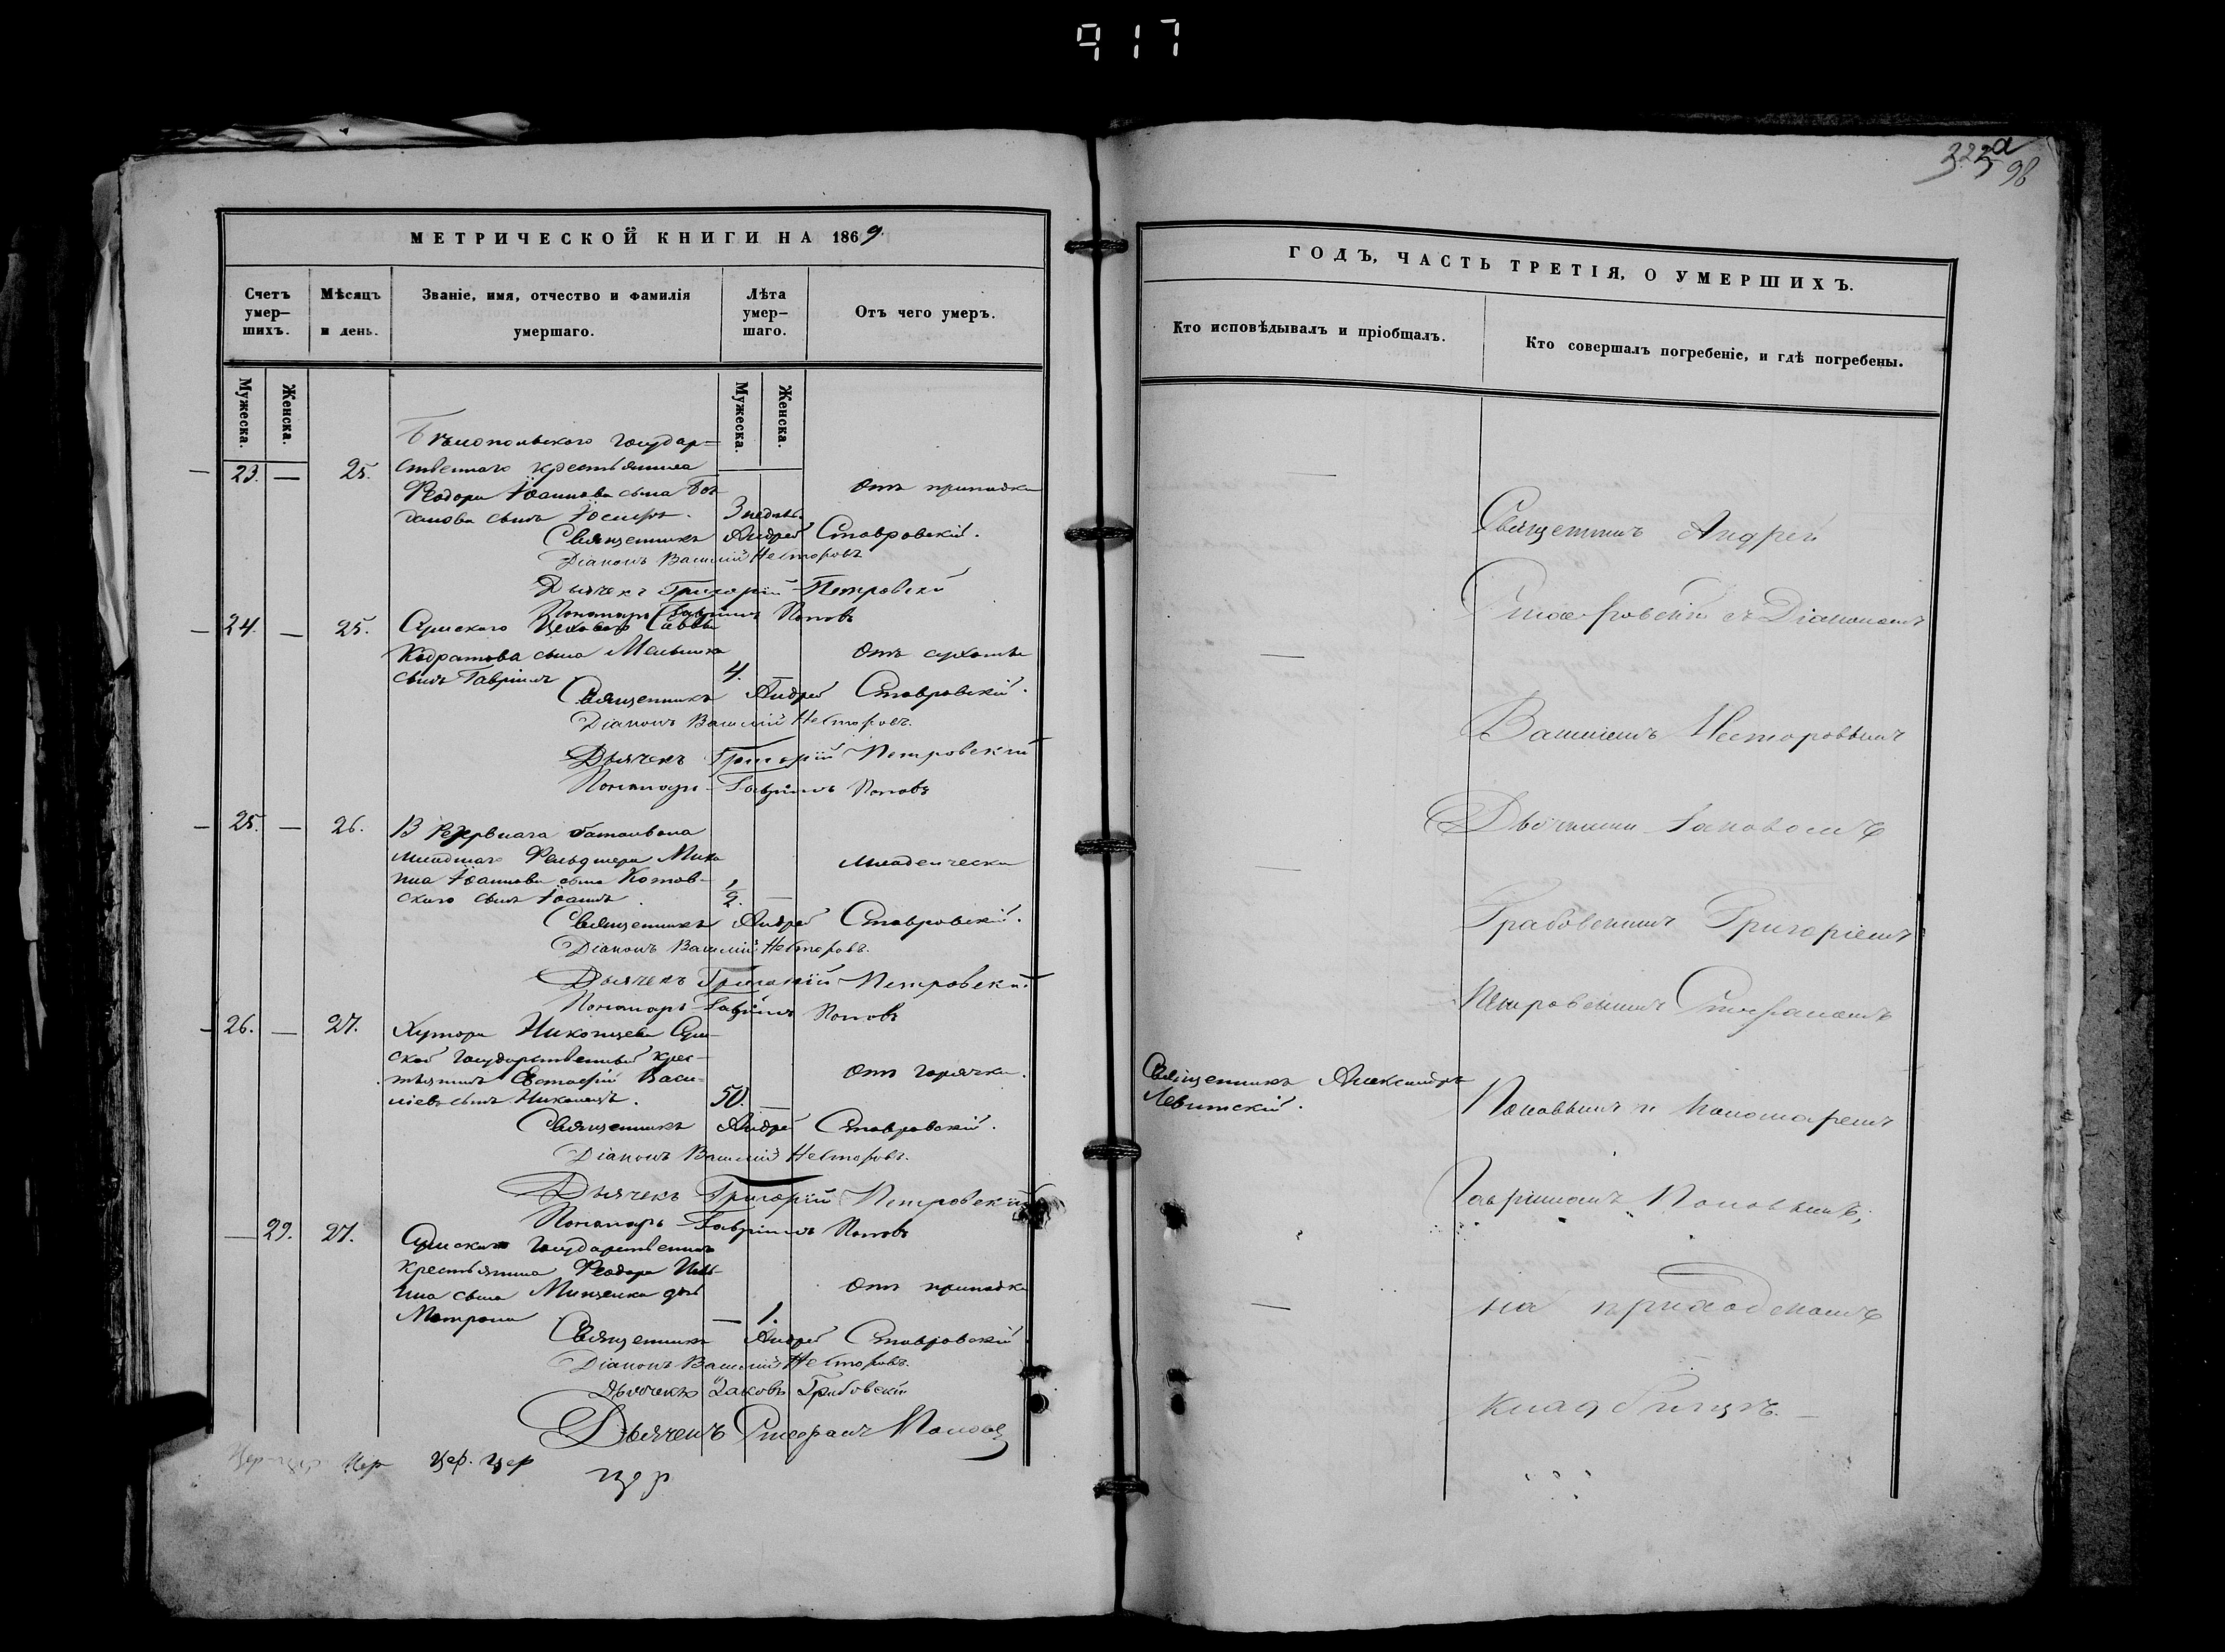 917
322а
98
МЕТРИЧЕСКОЙ КНИГИ НА 1869.
Счетъ умер-шихъ.
Мѣсяцъ и день.
Званіе, имя, отчество и фамилія умершаго.
Лѣта умер-шаго.
Отъ чего умеръ.
Мужеска.
Женска.
Мужеска.
Женска.
Бѣлопольского государ-
23. — 25. ственнаго крестьянина
Ѳеодора Іоаннова сына Бог- Отъ припадка
данова сынъ Іосифъ. 3 недѣль.
Священникъ Андрей Ставровскій.
Діаконъ Василій Несторовъ
Дьячекъ Григорій Петровскій
Пономарь Гавріилъ Поповъ
24. — 25. Сумского Цеховаго Саввы
Кодратова сына Мельника Отъ сухоты
сынъ Гавріилъ 4.
Священникъ Андрей Ставровскій.
Діаконъ Василій Несторовъ.
Дьячекъ Григорій Петровскій
Пономарь Гавріилъ Поповъ
25. — 26. Резервнаго баталіона
младшаго Фельдшера Миха
ила Іоаннова сына Котов- младенческа
скаго сынъ Іоаннъ. 1/2.
Священникъ Андрей Ставровскій.
Діаконъ Василій Несторовъ.
Дьячекъ Григорій Петровскій
Пономарь Гавріилъ Поповъ
26. — 27. Хутора Никонцева Сум-
ской государственный крес-
тьянинъ Евстафій Васи- Отъ горячки.
ліевъ сынъ Никонецъ. 50. —
Священникъ Андрей Ставровскій.
Діаконъ Василій Несторовъ.
Дьячекъ Григорій Петровскій
Пономарь Гавріилъ Поповъ
— 29. 27. Сумского государственнаго
крестьянина Ѳеодора Иль-
ина сына Мищенка дочь Отъ припадка
Матрона — 1.
Священникъ Андрей Ставровскій
Діаконъ Василій Несторовъ.
Дьячекъ Іаковъ Грабовскій
Дьячекъ Стефанъ Поповъ
Цер Цер. Цер
Цер
ГОДЪ, ЧАСТЬ ТРЕТІЯ, О УМЕРШИХЪ.
Кто исповѣдывалъ и пріобщалъ.
Кто совершалъ погребеніе, и гдѣ погребены.
Священникъ Александръ
Левитскій.
Священникъ Андрей
Ставровскій съ Діакономъ
Василіемъ Несторовымъ
Дьячками Іаковомъ
Грабовскимъ Григоріемъ
Петровскимъ Стефаномъ
Поповымъ и Пономаремъ
Гавріиломъ Поповымъ;
на приходскомъ
кладбищѣ. —